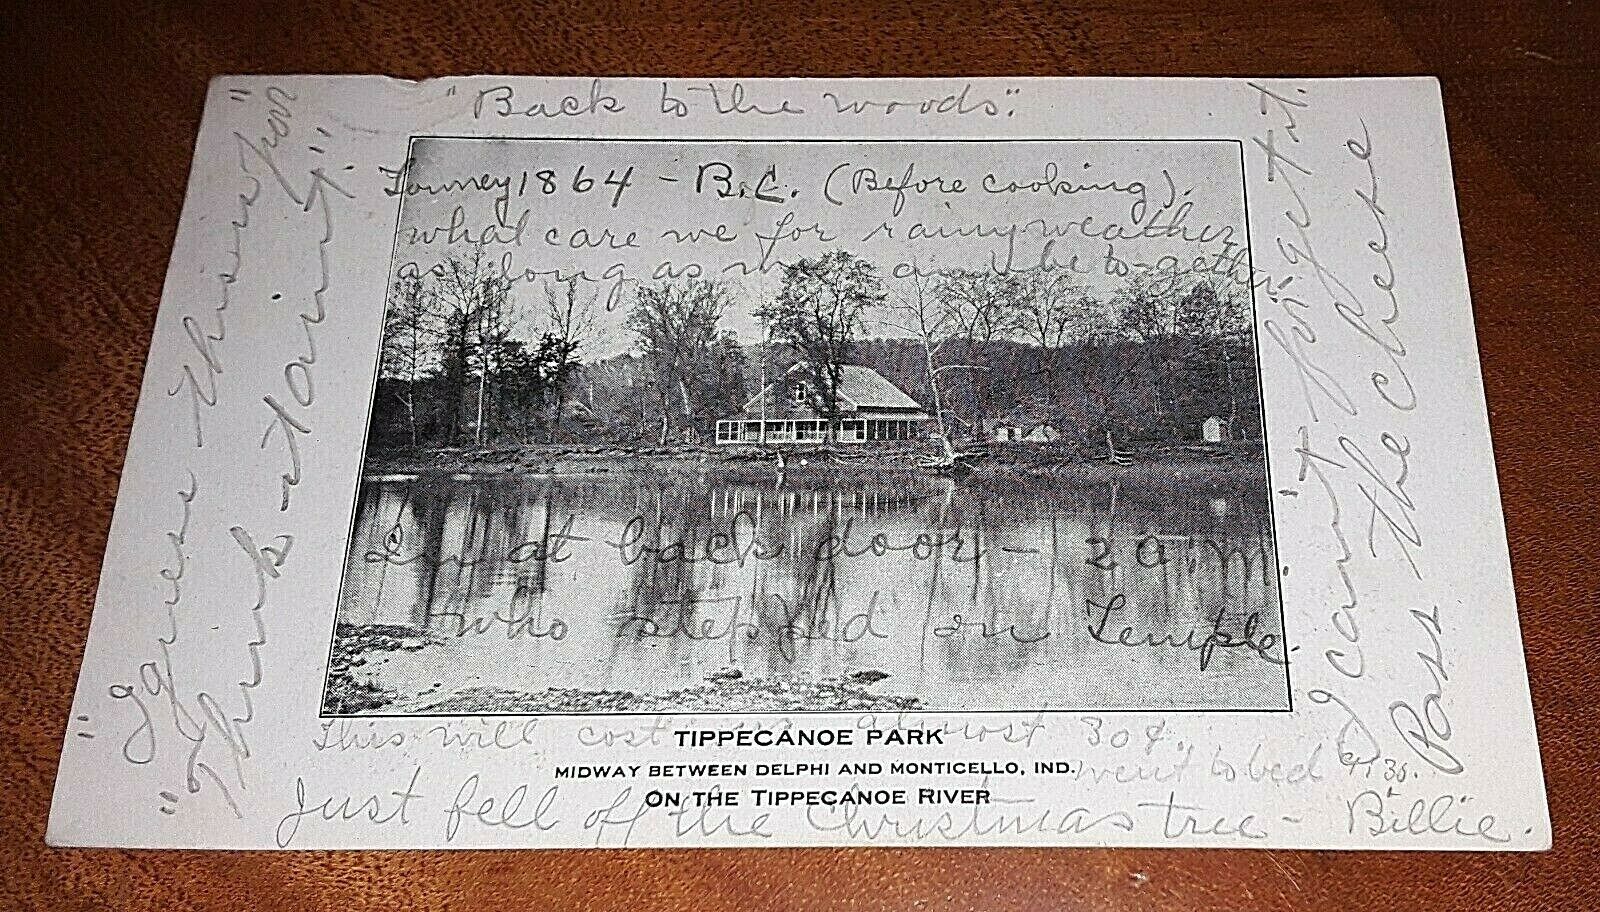 "Back to the woods".
1864 - B.C. (Before cooking).
what care we for rainy weather
as long as we can be to-gether
In at back door - 2 a.m.
who stepped on Temple.
This will cost us almost 30¢
TIPPECANOE PARK
MIDWAY BETWEEN DELPHI AND MONTICELLO, IND.
went to bed 9:30.
ON THE TIPPECANOE RIVER
Just fell off the Christmas tree - "Billie".
"I guess this is poor
"Think-atorium" "
I can't forget it.
Pass the cheese